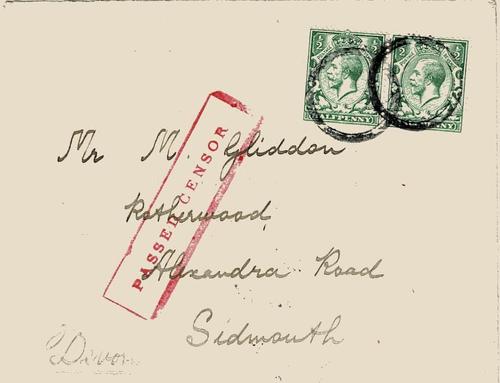 ½ ½ ½ ½
HALFPENNY HALFPENNY
PASSED CENSOR
Mr M. Gliddon
Rotherwood
Alexandra Road
Sidmouth
Devon